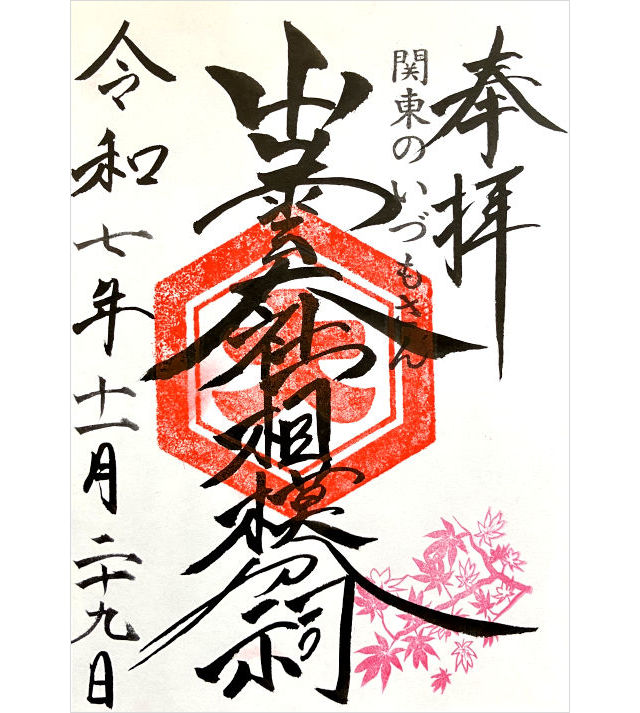 奉拝
関東のいづもさん
出雲大社相模分祠
令和七年十一月二十九日